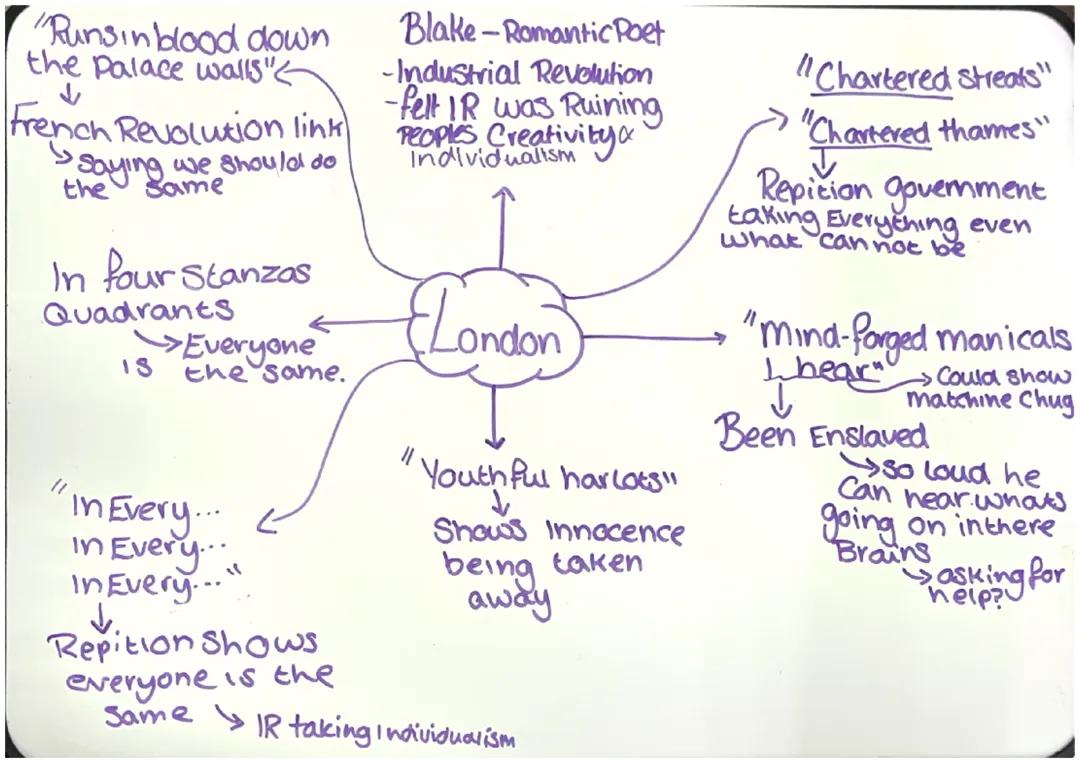 "Runs in blood down
the Palace walls"
French Revolution link
Saying we should do
the same
Blake - Romantic Poet
-Industrial Revolution
-felt IR was Ruining
Peoples Creativity &
Individualism
"Chartered streats"
"Chartered thames"
Repition government
taking Everything even
what cannot be
In four Stanzas
Quadrants
Everyone
is the same.
London
"Mind-forged manicals
I hear"
Could show
matchine Chug
Been Enslaved
so loud he
Can hear whats
going on in there
Brains
asking for
help?
"Youthful harlots"
Shows Innocence
being taken
away
"In Every...
In Every...
In Every..."
Repition Shows
everyone is the
Same
IR taking Individualism